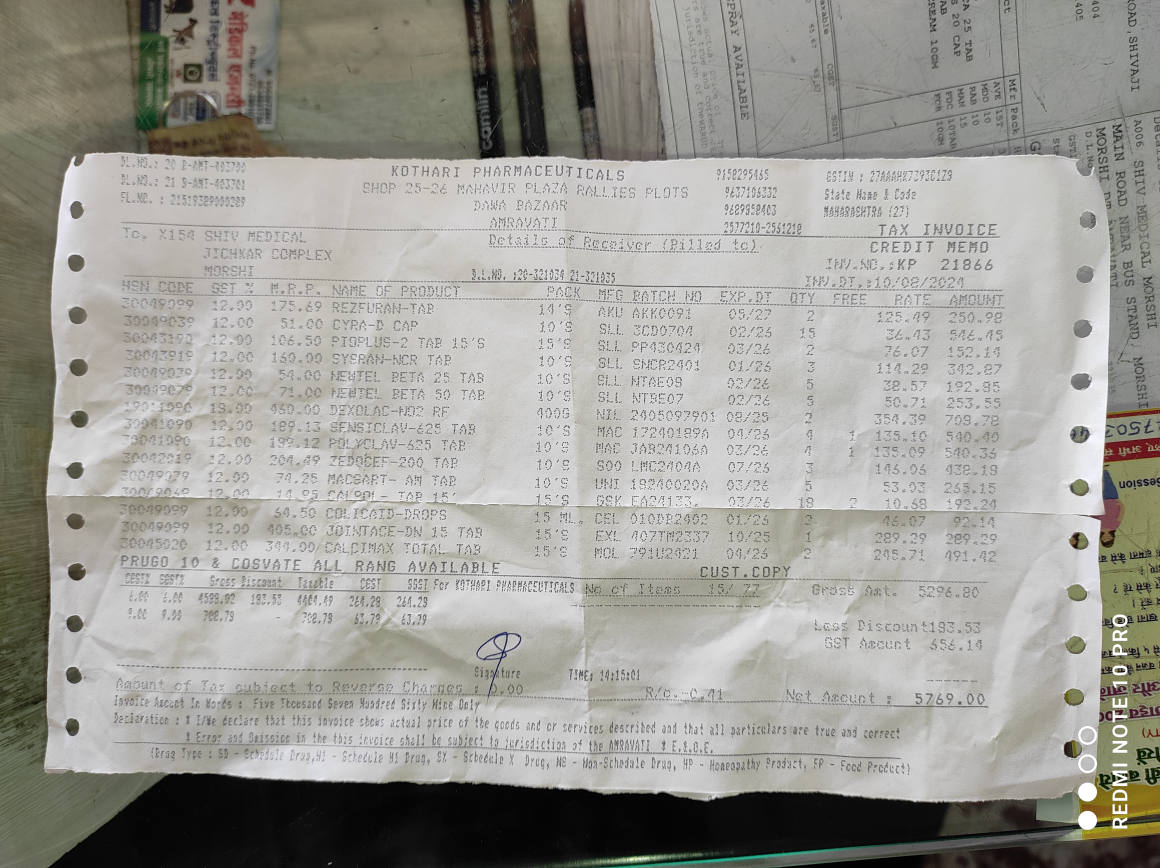 DL.NO.: 20 B-AMT-403700
DL.NO.: 21 B-AMT-403701
FL.NO.: 21519389000289
KOTHARI PHARMACEUTICALS
SHOP 25-26 MAHAVIR PLAZA RALLIES PLOTS
DAWA BAZAAR
AMRAVATI
9158295465
9637106332
9689958403
2577210-2561218
State Name & Code
MAHARASHTRA (27)
TAX INVOICE
CREDIT MEMO
INV.NO.:KP 21866
INV.DT.:10/08/2024
To, X154 SHIV MEDICAL
JICHKAR COMPLEX
MORSHI
Details of Receiver (Billed to)
D.L.NO. :20-321034 21-321035
HSN CODE GST % M.R.P. NAME OF PRODUCT PACK MFG BATCH NO EXP.DT QTY FREE RATE AMOUNT
30049099 12.00 175.69 REZFURAN-TAB 14'S AKU AKK0091 05/27 2 125.49 250.98
30049039 12.00 51.00 CYRA-D CAP 10'S SLL 3CD0704 02/26 15 36.43 546.45
30043190 12.00 106.50 PIOPLUS-2 TAB 15'S 15'S SLL PP430424 03/26 2 76.07 152.14
30043919 12.00 160.00 SYSRAN-NCR TAB 10'S SLL SNCR2401 01/26 3 114.29 342.87
12.00 54.00 NEWTEL BETA 25 TAB 10'S SLL NTAE08 02/26 5 38.57 192.85
30049079 12.00 71.00 NEWTEL BETA 50 TAB 10'S SLL NTBE07 02/26 5 50.71 253.55
18.00 460.00 DEXOLAC-NO2 RF 400G NIL 2405097901 08/25 2 354.39 708.78
12.00 189.13 SENSICLAV-625 TAB 10'S MAC 17240189A 04/26 4 1 135.10 540.40
12.00 189.12 POLYCLAV-625 TAB 10'S MAC JAB24106A 03/26 4 1 135.09 540.36
30042019 12.00 204.49 ZEDOCEF-200 TAB 10'S SOO LMC2404A 07/26 3 146.06 438.18
12.00 74.25 MACSART- AM TAB 10'S UNI 18240020A 03/26 5 53.03 265.15
12.00 14.95 CALPOL- TAB 15' 15'S GSK EA24133. 03/26 18 2 10.68 192.24
30049099 12.00 64.50 COLICAID-DROPS 15 ML. CEL 010DB2402 01/26 2 46.07 92.14
30049099 12.00 405.00 JOINTACE-DN 15 TAB 15'S EXL 407TM2337 10/25 1 289.29 289.29
30045020 12.00 344.00 CALCIMAX TOTAL TAB 15'S MOL 791U2421 04/26 2 245.71 491.42
PRUGO 10 & COSVATE ALL RANG AVAILABLE CUST.COPY
CGST% SGST% Gross Discount Taxable CGST SGST For KOTHARI PHARMACEUTICALS No of Items 15/ 77 Gross Amt. 5296.80
6.00 6.00 193.53 264.29 264.29
9.00 9.00 708.79 - 708.79 63.79 63.79
Less Discount193.53
GST Amount 656.14
Signature TIME: 14:15:01
Amount of Tax subject to Reverse Charges : 0.00 R/o.-C.41 Net Amount : 5769.00
Invoice Amount In Words : Five Thousand Seven Hundred Sixty Nine Only
Declaration : * I/We declare that this invoice shows actual price of the goods and or services described and that all particulars are true and correct
* Error and Omission in the this invoice shall be subject to jurisdiction of the AMRAVATI * E.&.O.E.
(Drug Type : SD - Schedule Drug,H1 - Schedule H1 Drug, SX - Schedule X Drug, NS - Non-Schedule Drug, HP - Homeopathy Product, FP - Food Product)
camlin
SPRAY AVAILABLE
ROAD,SHIVAJI
A006 SHIV MEDICAL MORSHI
MAIN ROAD NEAR BUS STAND, MORSHI
REDMI NOTE 10 PRO